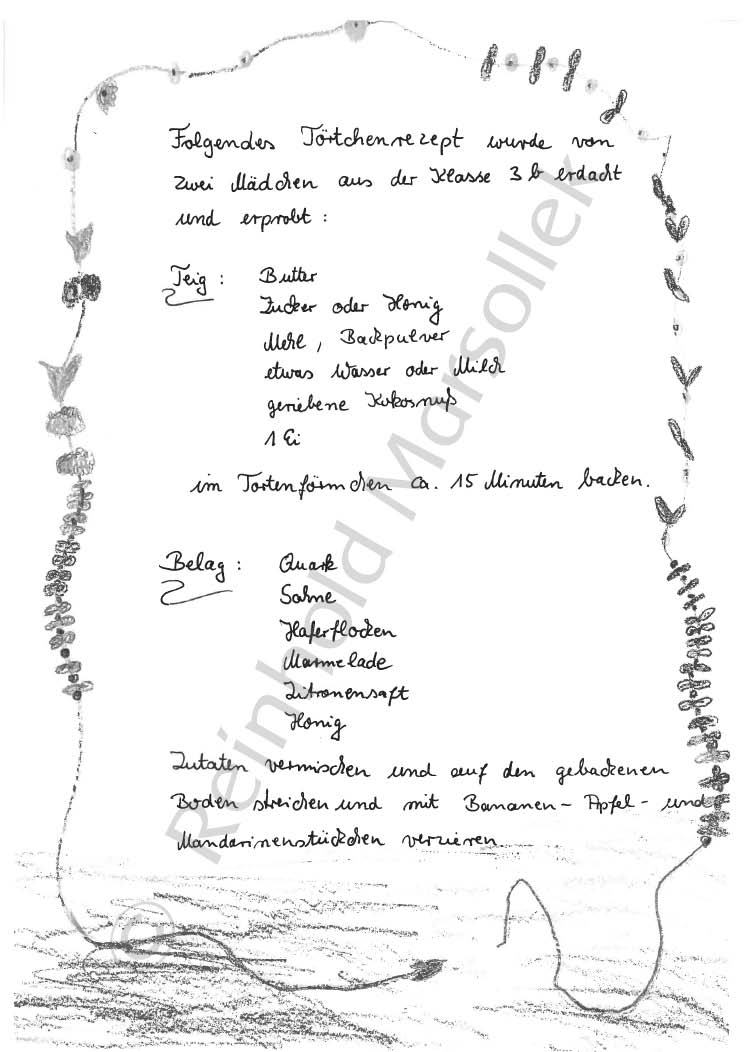 Folgendes Törtchenrezept wurde von
zwei Mädchen aus der Klasse 3b erdacht
und erprobt :
Teig : Butter
Zucker oder Honig
Mehl , Backpulver
etwas Wasser oder Milch
geriebene Kokosnuß
1 Ei
im Tortenförmchen ca. 15 Minuten backen.
Belag : Quark
Sahne
Haferflocken
Marmelade
Zitronensaft
Honig
Zutaten vermischen und auf den gebackenen
Boden streichen und mit Bananen- Apfel- und
Mandarinenstückchen verzieren.
© Reinhold Marsollek